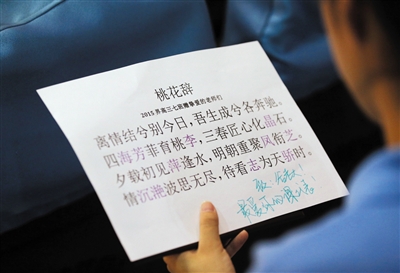 桃花辞
2015界高三七班赠尊爱的老师们
离情结兮别今日，吾生成兮名奔驰。
四海芳菲育桃李，三春匠心化晶石。
夕载初见萍逢水，明朝重聚凤衔芝。
情沉滟波思无尽，侍看志为天骄时。